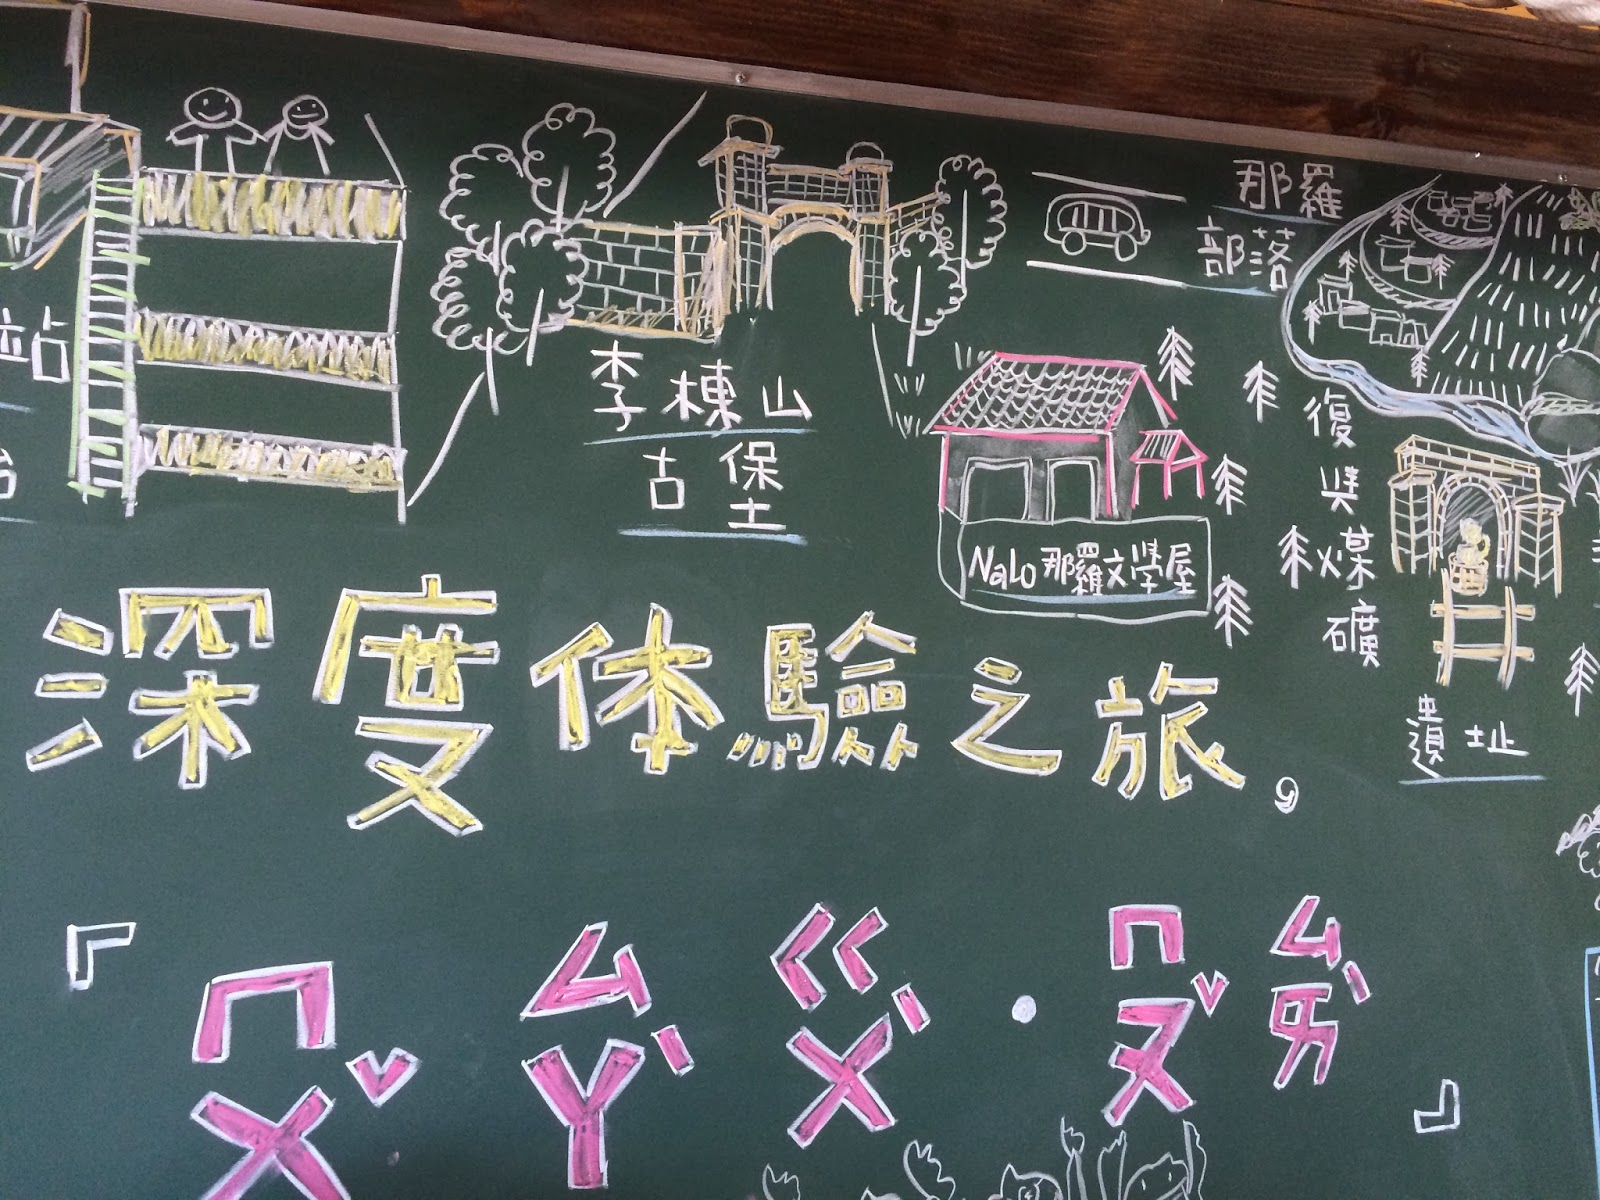 站
李棟山
古堡
那羅
部落
Nalo那羅文學屋
復興煤礦
遺址
深度体驗之旅。
『ㄇㄨˇ ㄙㄚˋ ㄍㄨˋ・ㄇㄡˇ ㄙㄞˋ』